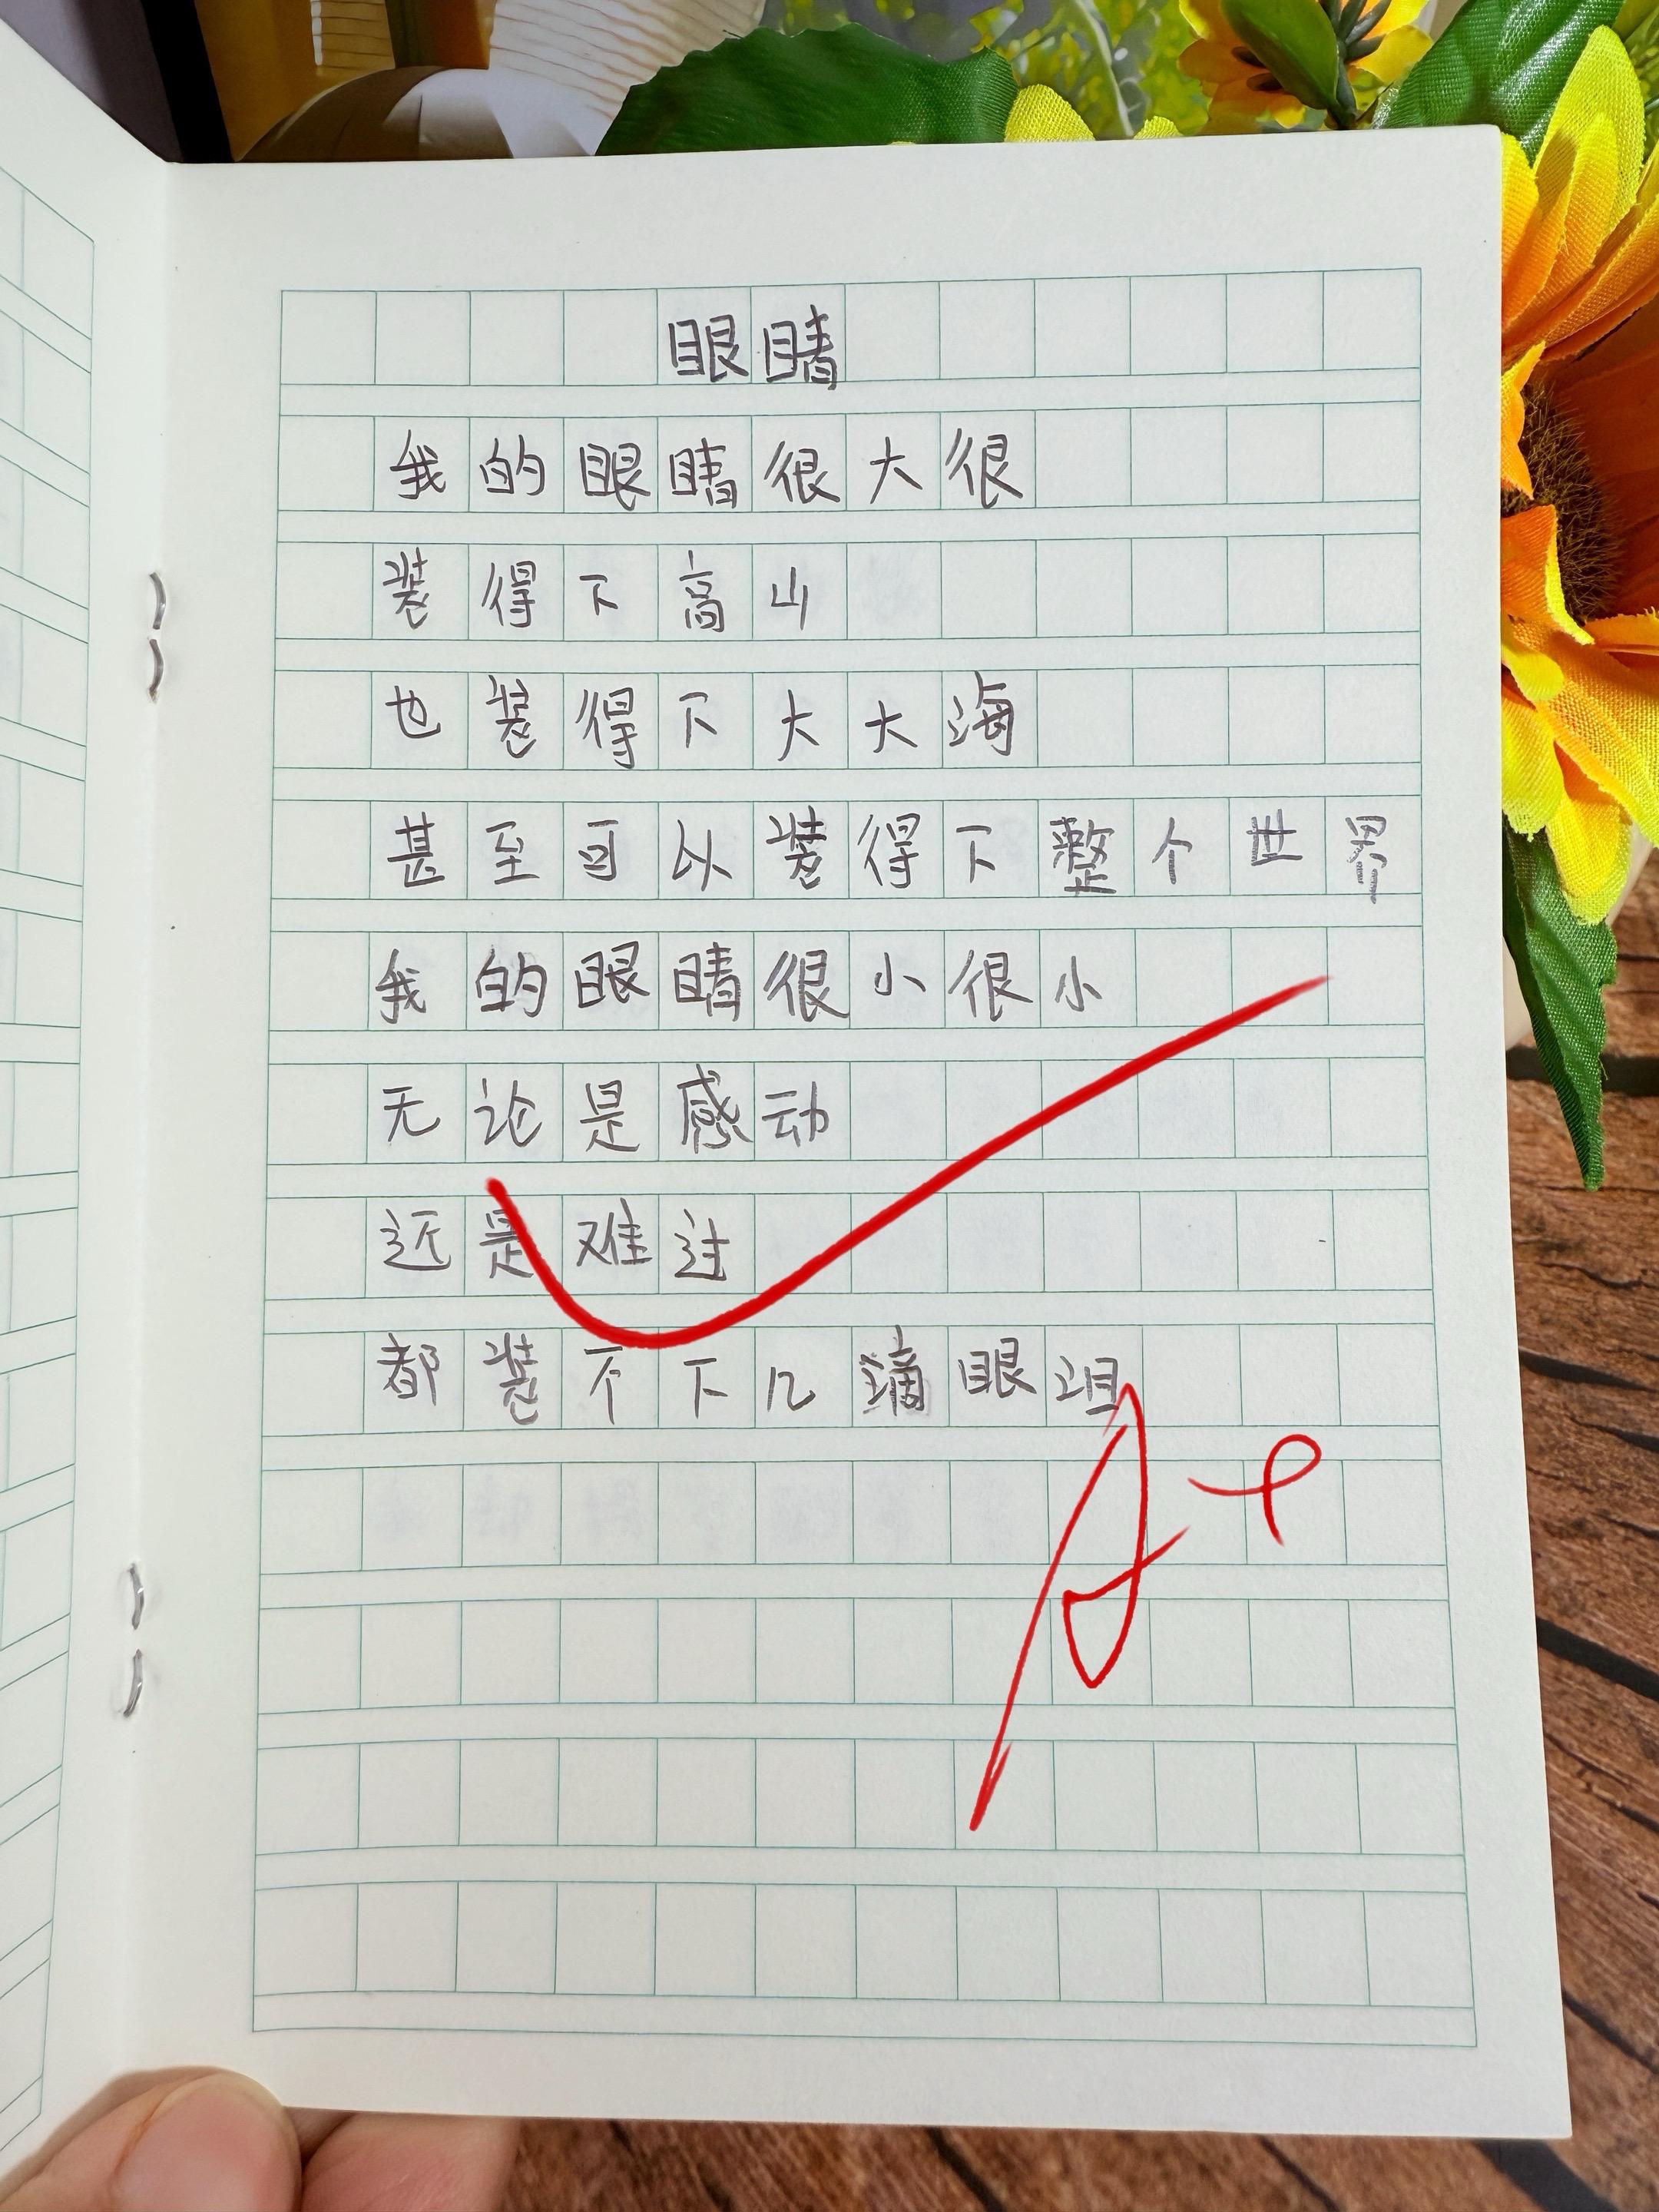 眼睛
我的眼睛很大很
装得下高山
也装得下大大海
甚至可以装得下整个世界
我的眼睛很小很小
无论是感动
还是难过
都装不下几滴眼泪
A+